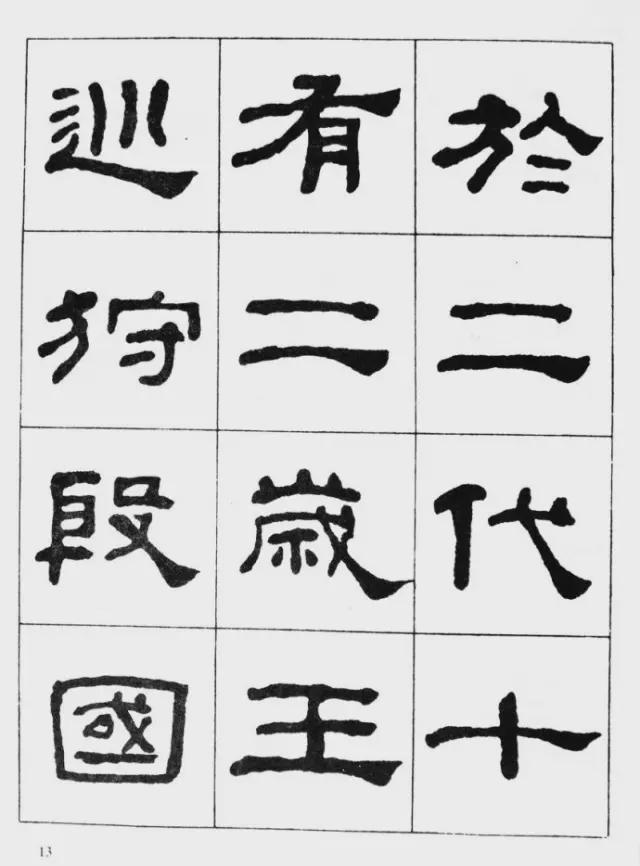 於二代十
有二歲王
巡狩殷國
13